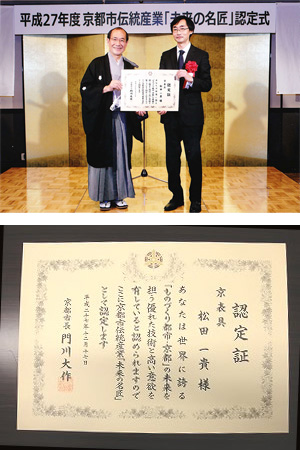 平成27年度 京都市伝統産業「未来の名匠」認定式
認定証
京表具
松田一貴様
あなたは世界に誇る
「ものづくり都市・京都」の未来を
担う優れた技術と高い意欲を
有していると認められますので
ここに京都市伝統産業「未来の名匠」
として認定します
平成二十七年十二月十七日
京都市長 門川大作